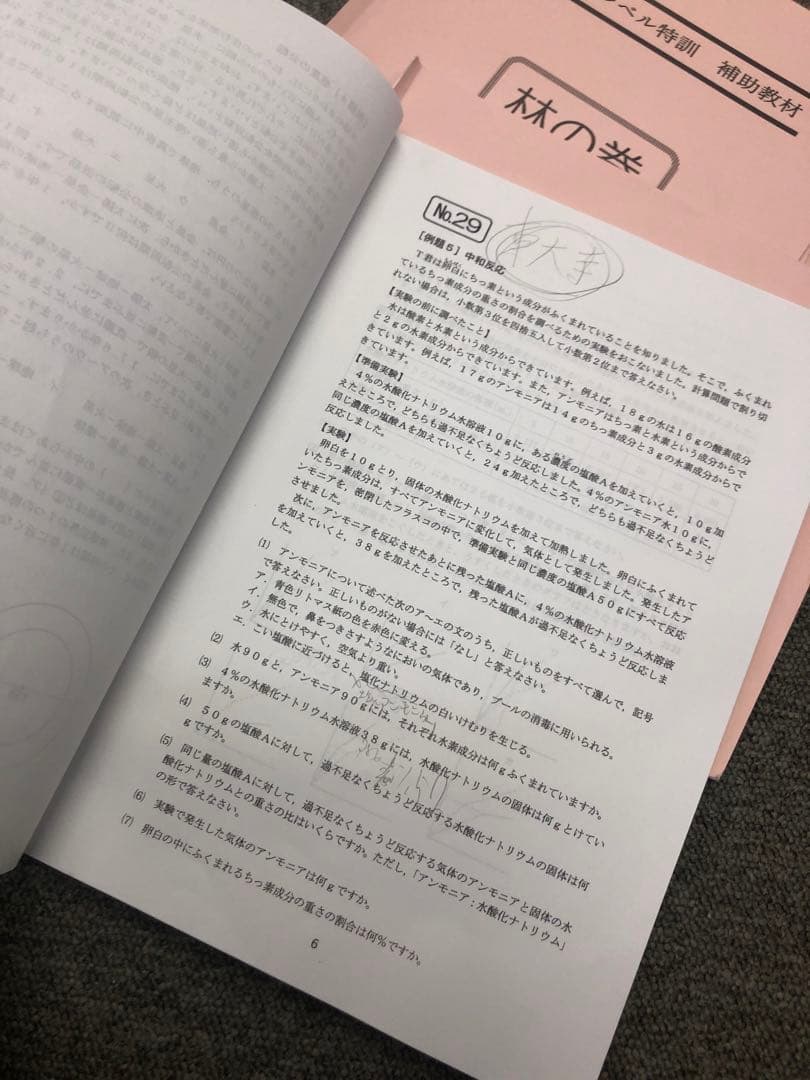 レベル特訓 補助教材
林の巻
No.29
[例題5] 中和反応
T君は卵白にちっ素という成分がふくまれていることを知りました。そこで、ふくまれ
ているちっ素成分の重さの割合を調べるための実験をおこないました。計算問題で割り切
れない場合は、小数第3位を四捨五入して小数第2位まで答えなさい。
【実験の前に調べたこと】
水は酸素と水素という成分からできています。例えば、18gの水は16gの酸素成分
と2gの水素成分からできています。また、アンモニアはちっ素と水素という成分からで
きています。例えば、17gのアンモニアは14gのちっ素成分と3gの水素成分からで
きています。
【準備実験】
4%の水酸化ナトリウム水溶液10gに、ある濃度の塩酸Aを加えていくと、10g加
えたところで、どちらも過不足なくちょうど反応しました。4%のアンモニア水10gに、
同じ濃度の塩酸Aを加えていくと、24g加えたところで、どちらも過不足なくちょうど
反応しました。
【実験】
卵白を10gとり、固体の水酸化ナトリウムを加えて加熱しました。卵白にふくまれて
いたちっ素成分は、すべてアンモニアに変化して、気体として発生しました。発生したア
ンモニアを、密閉したフラスコの中で、準備実験と同じ濃度の塩酸A50gにすべて反応
させました。
次に、アンモニアを反応させたあとに残った塩酸Aに、4%の水酸化ナトリウム水溶液
を加えていくと、38gを加えたところで、残った塩酸Aが過不足なくちょうど反応しまし
た。
(1) アンモニアについて述べた次のア~エの文のうち、正しいものをすべて選んで、記号
で答えなさい。正しいものがない場合には「なし」と答えなさい。
ア、青色リトマス紙の色を赤色に変える。
イ、無色で、鼻をつきさすようなにおいの気体であり、プールの消毒に用いられる。
ウ、水にとけやすく、空気より重い。
エ、こい塩酸に近づけると、塩化ナトリウムの白いけむりを生じる。
(2) 水90gと、アンモニア90gには、それぞれ水素成分は何gふくまれていますか。
(3) 4%の水酸化ナトリウム水溶液38gには、水酸化ナトリウムの固体は何gとけてい
ますか。
(4) 50gの塩酸Aに対して、過不足なくちょうど反応する水酸化ナトリウムの固体は何
gですか。
(5) 同じ量の塩酸Aに対して、過不足なくちょうど反応する気体のアンモニアと固体の水
酸化ナトリウムとの重さの比はいくらですか。ただし、「アンモニア:水酸化ナトリウム」
の形で答えなさい。
(6) 実験で発生した気体のアンモニアは何gですか。
(7) 卵白の中にふくまれるちっ素成分の重さの割合は何%ですか。
6